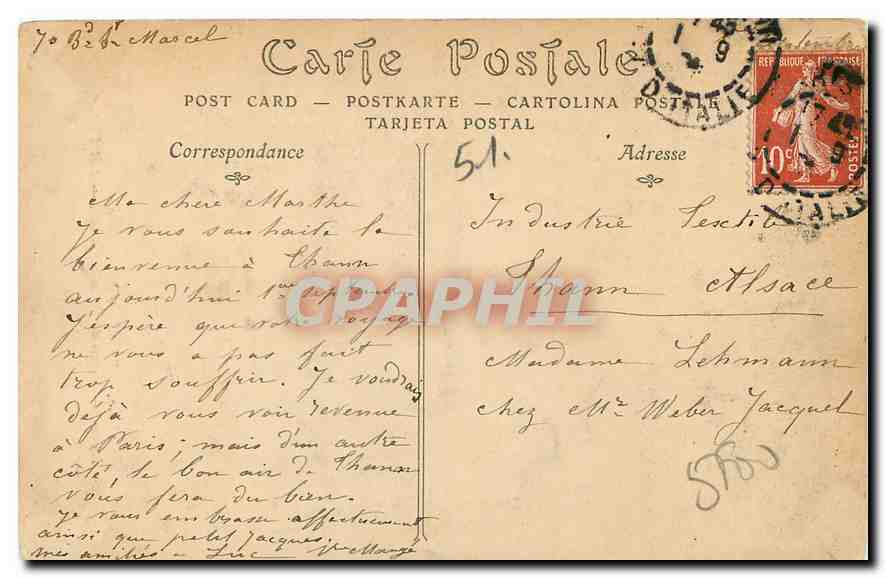 70 Bd St Marcel
Carte Postale
POST CARD — POSTKARTE — CARTOLINA POSTALE
TARJETA POSTAL
Correspondance
Ma chère Marthe
Je vous souhaite la
bienvenue à Thann
aujourd'hui 1er septembre
J'espère que votre voyage
ne vous a pas fait
trop souffrir. Je voudrais
déjà vous voir revenue
à Paris; mais d'un autre
côté, le bon air de Thann
vous fera du bien.
Je vous embrasse affectueusement
ainsi que petit Jacques.
mes amitiés a Luc
51.
Adresse
Industrie Textile
Thann Alsace
Madame Lehmann
chez Mr. Weber Jacquel
5780
REPUBLIQUE FRANÇAISE
10c
POSTES
D'ITALIE
D'ITALIE
CPAPHIL